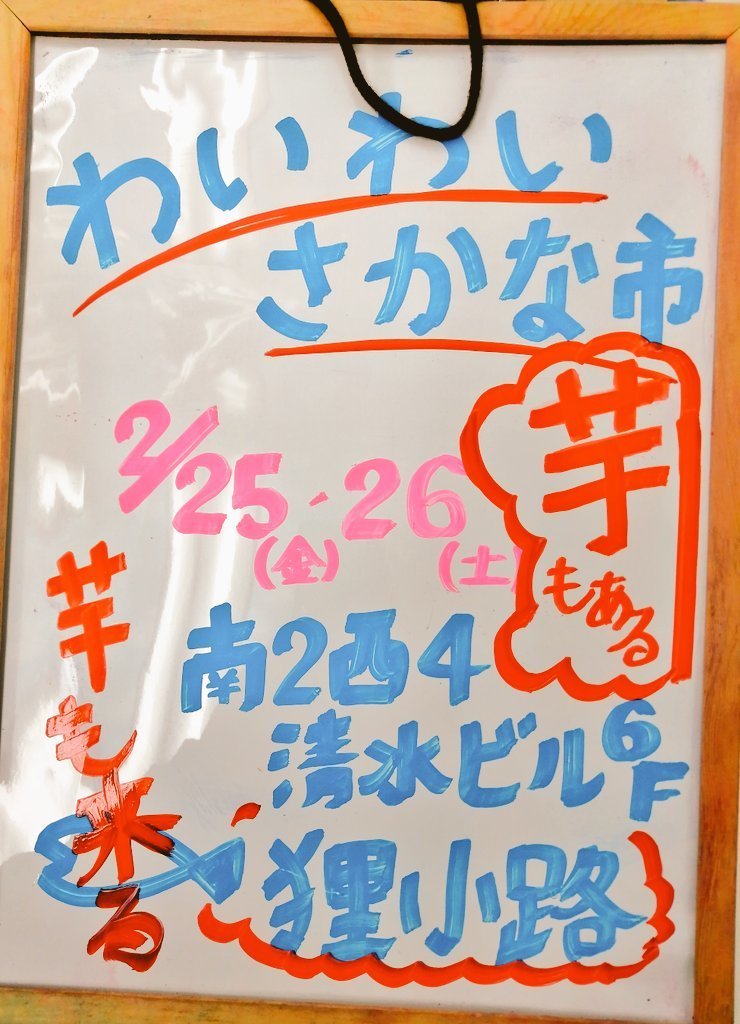 わいわい
さかな市
芋
もある
2/25・26
(金) (土)
南2西4
清水ビル6F
狸小路
芋も来る